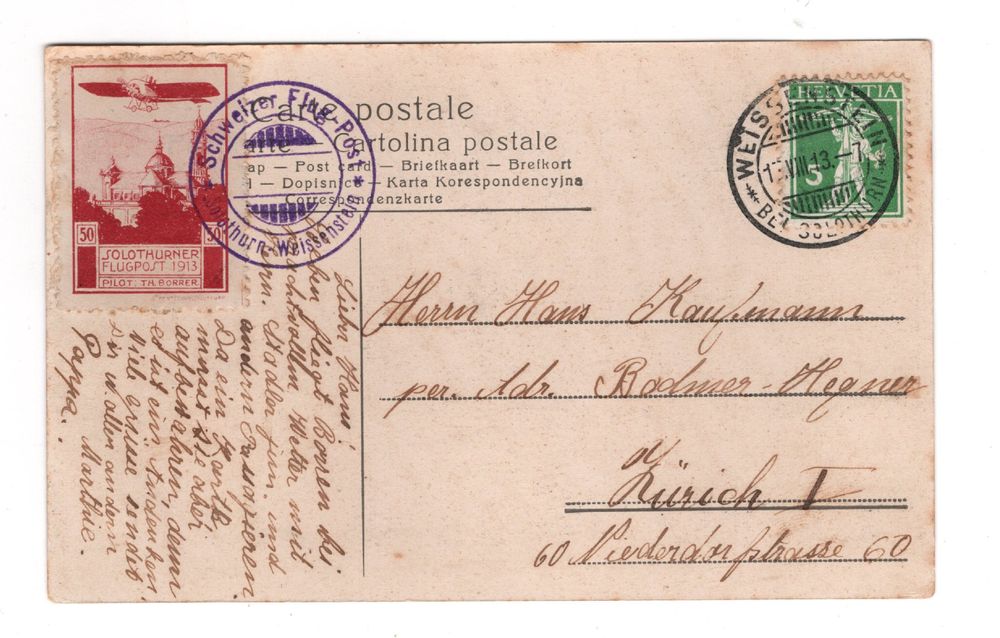 Carte postale
Cartolina postale
Post card — Briefkaart — Brefkort
Dopisnice — Karta Korespondencyjna
Correspondenzkarte
50 50
SOLOTHURNER
FLUGPOST 1913
PILOT: TH. BORRER
* Schweizer Flug-Post *
Solothurn-Weissenstein
HELVETIA
5
WEISSENSTEIN
VIII.13.
BEI SOLOTHURN
Lieber Hans!
fliegt Borrer bei
prachtvollem Wetter mit
Hrn. Stadler jun. und
andern Passagieren.
Da ein Karte
musst Sie aber
aufbewahren, denn
es ist ein Andenken.
Viele Grüsse sendet
Dir u. allen andern
Martha.
Pappa.
Herrn Hans Kaufmann
per. Adr. Bodmer-Hegner
Zürich I
60 Niederdorfstrasse 60